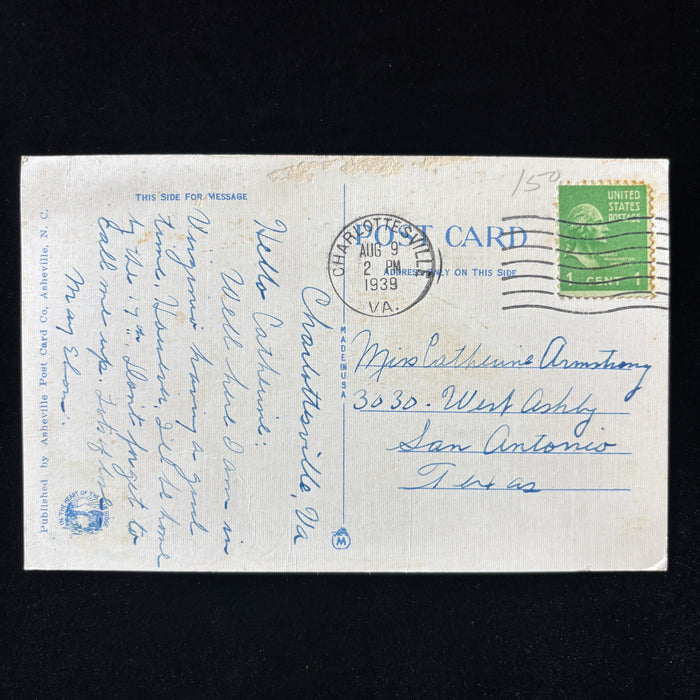 THIS SIDE FOR MESSAGE
Charlottesville, Va
Hello Catherine:
Well here I am in
Virginia having a good
time. However, I'll be home
by the 17th. Don't forget to
call me up. Lots of love
Mary
Published by Asheville Post Card Co., Asheville, N. C.
IN THE HEART OF THE
MADE IN U S A
M
150
POST CARD
ADDRESS ONLY ON THIS SIDE
CHARLOTTESVILLE
AUG 9
2 PM
1939
VA.
UNITED
STATES
POSTAGE
WASHINGTON
1 CENT 1
Miss Catherine Armstrong
3030 - West Ashby
San Antonio
Texas